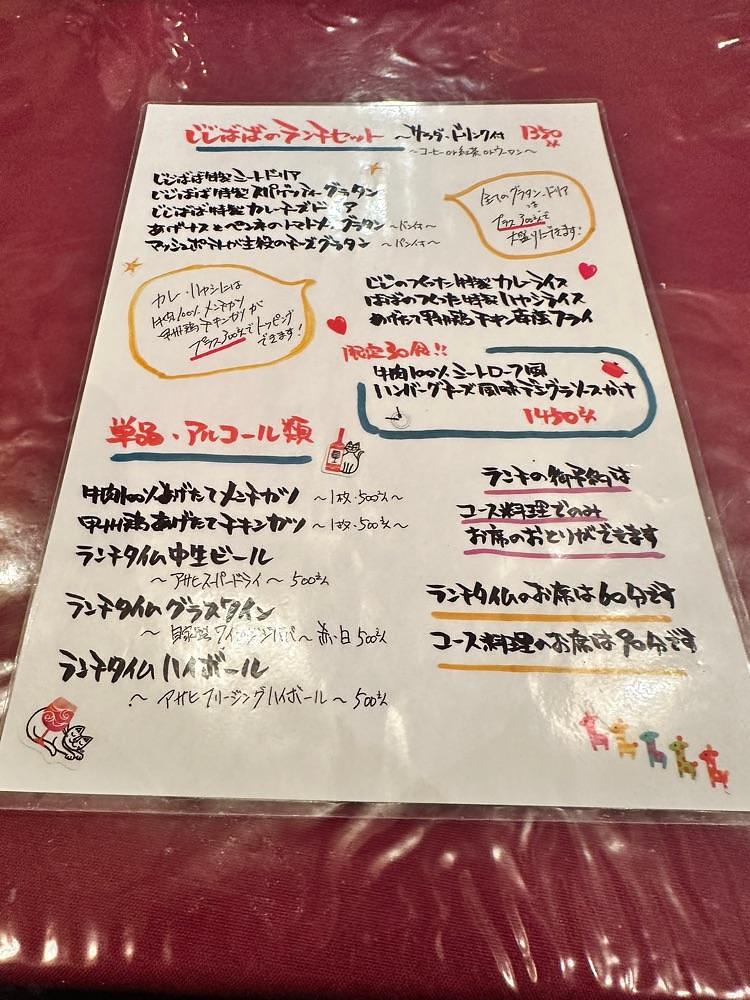 じじばばのランチセット ~サラダ・ドリンク付 1350えん
~コーヒーor紅茶orウーロン~
じじばば特製ミートドリア
じじばば特製スパゲッティーグラタン
じじばば特製カレーチーズドリア
あげナスとペンネのトマトソースグラタン ~パン付~
マッシュポテトが主役のチーズグラタン ~パン付~
全てのグラタン・ドリア
は
プラス300えんで
大盛りにできます!
カレー・ハヤシには
牛肉100%メンチカツ
甲州鶏チキンカツが
プラス300えんでトッピング
できます!
じじのつくった特製カレーライス
ばばのつくった特製ハヤシライス
あげたて甲州鶏チキン
フライ
限定30食!!
牛肉100%ミートローフ風
ハンバーグチーズ風味デミグラソースがけ
1450えん
単品・アルコール類
牛肉100%あげたてメンチカツ ~1枚・500えん~
甲州鶏あげたてチキンカツ ~1枚・500えん~
ランチタイム中生ビール
~アサヒスーパードライ~ 500えん
ランチタイムグラスワイン
~ 赤・白 500えん
ランチタイムハイボール
~ アサヒフリージングハイボール ~ 500えん
ランチの御予約は
コース料理でのみ
お席のおとりができます
ランチタイムのお席は60分です
コース料理のお席は90分です